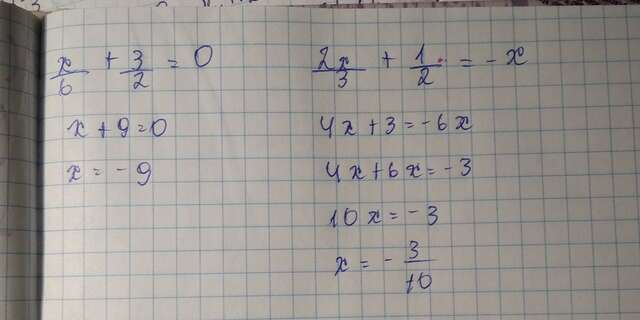 x/6 + 3/2 = 0
x + 9 = 0
x = - 9
2x/3 + 1/2 = - x
4x + 3 = - 6x
4x + 6x = - 3
10x = - 3
x = - 3/10